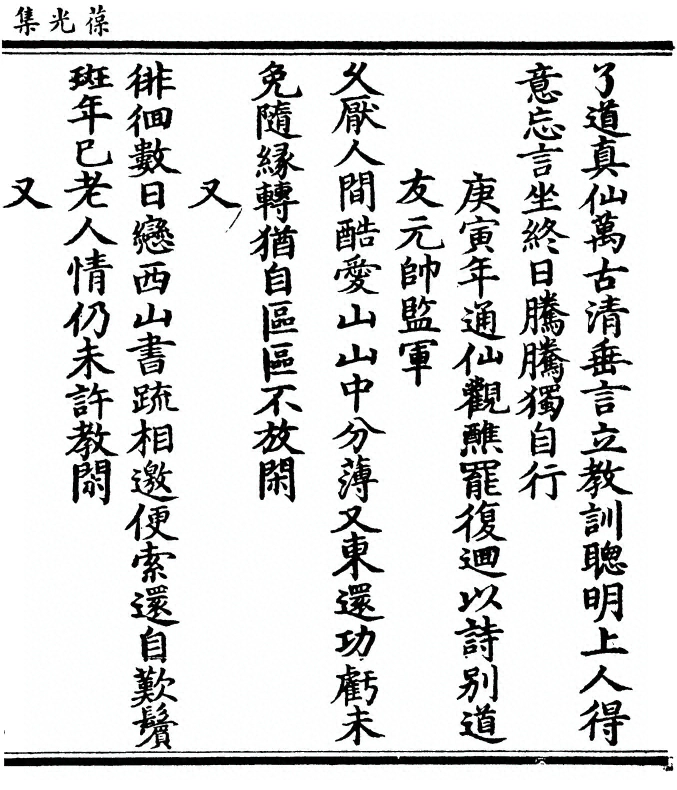 葆光集
了道真仙萬古清垂言立教訓聰明上人得
意忘言坐終日騰騰獨自行
庚寅年通仙觀醮罷復迴以詩别道
友元帥監軍
久厭人間酷愛山山中分薄又東還功虧未
免隨緣轉猶自區區不放閑
又
徘徊數日戀西山書䟽相邀便索還自歎鬢
斑年已老人情仍未許教閑
又